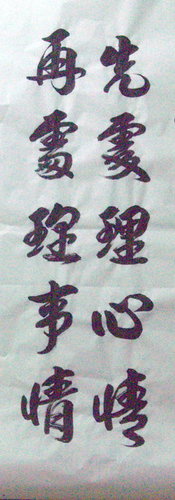 先處理心情
再處理事情